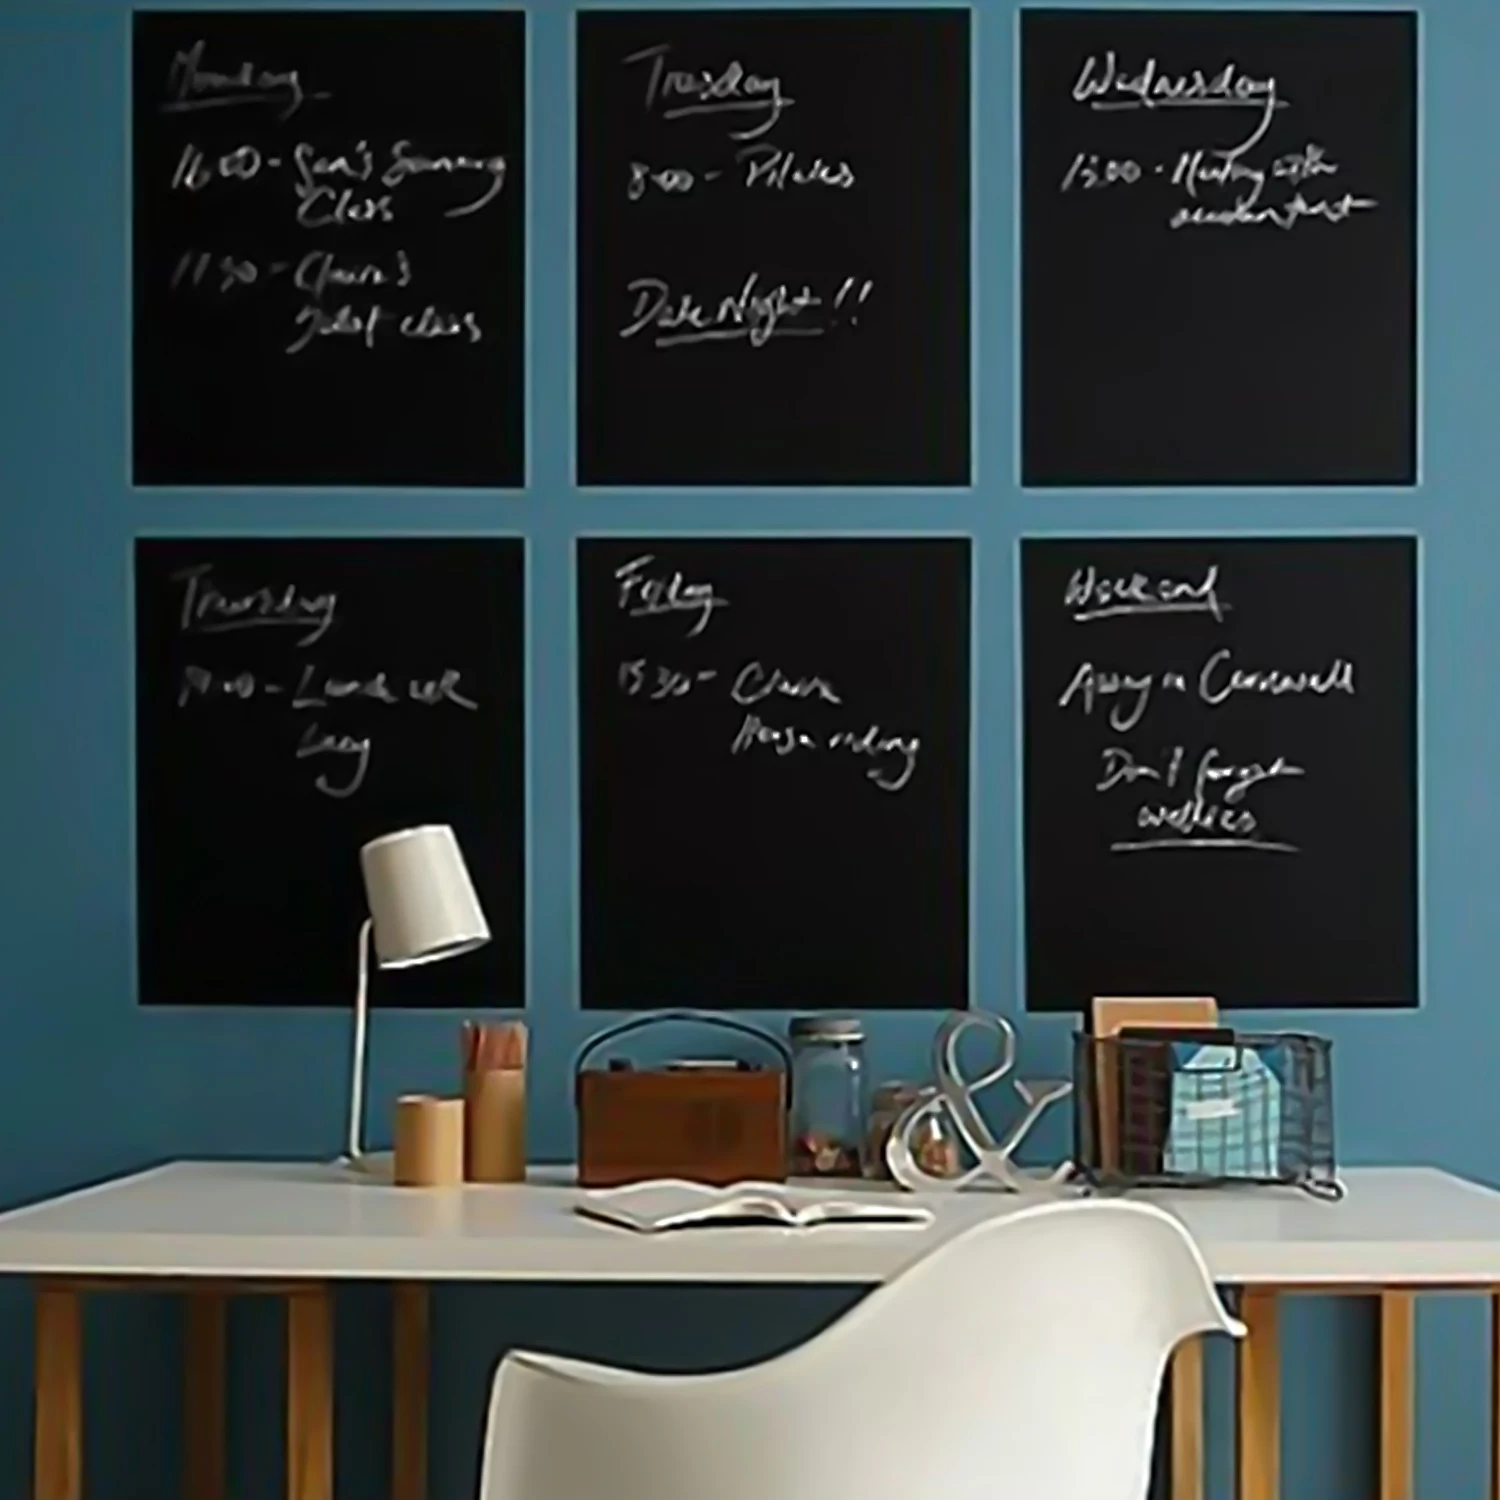 Monday
16:00 - Sam's Swimming
Class
17:30 - Claire's
Ballet class
Tuesday
8:00 - Pilates
Date Night!!
Wednesday
13:00 - Meeting with
accountant
Thursday
- Lunch with
Lucy
Friday
15:30 - Claire
Horse riding
Weekend
Away in Cornwall
Don't forget
wellies
&